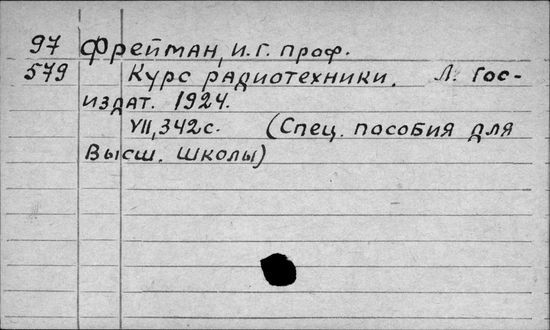 97 Фрейман, И.Г. проф.
579 Курс радиотехники. Л. Гос-
издат. 1924.
VII, 342с. (Спец. пособия для
Высш. школы)